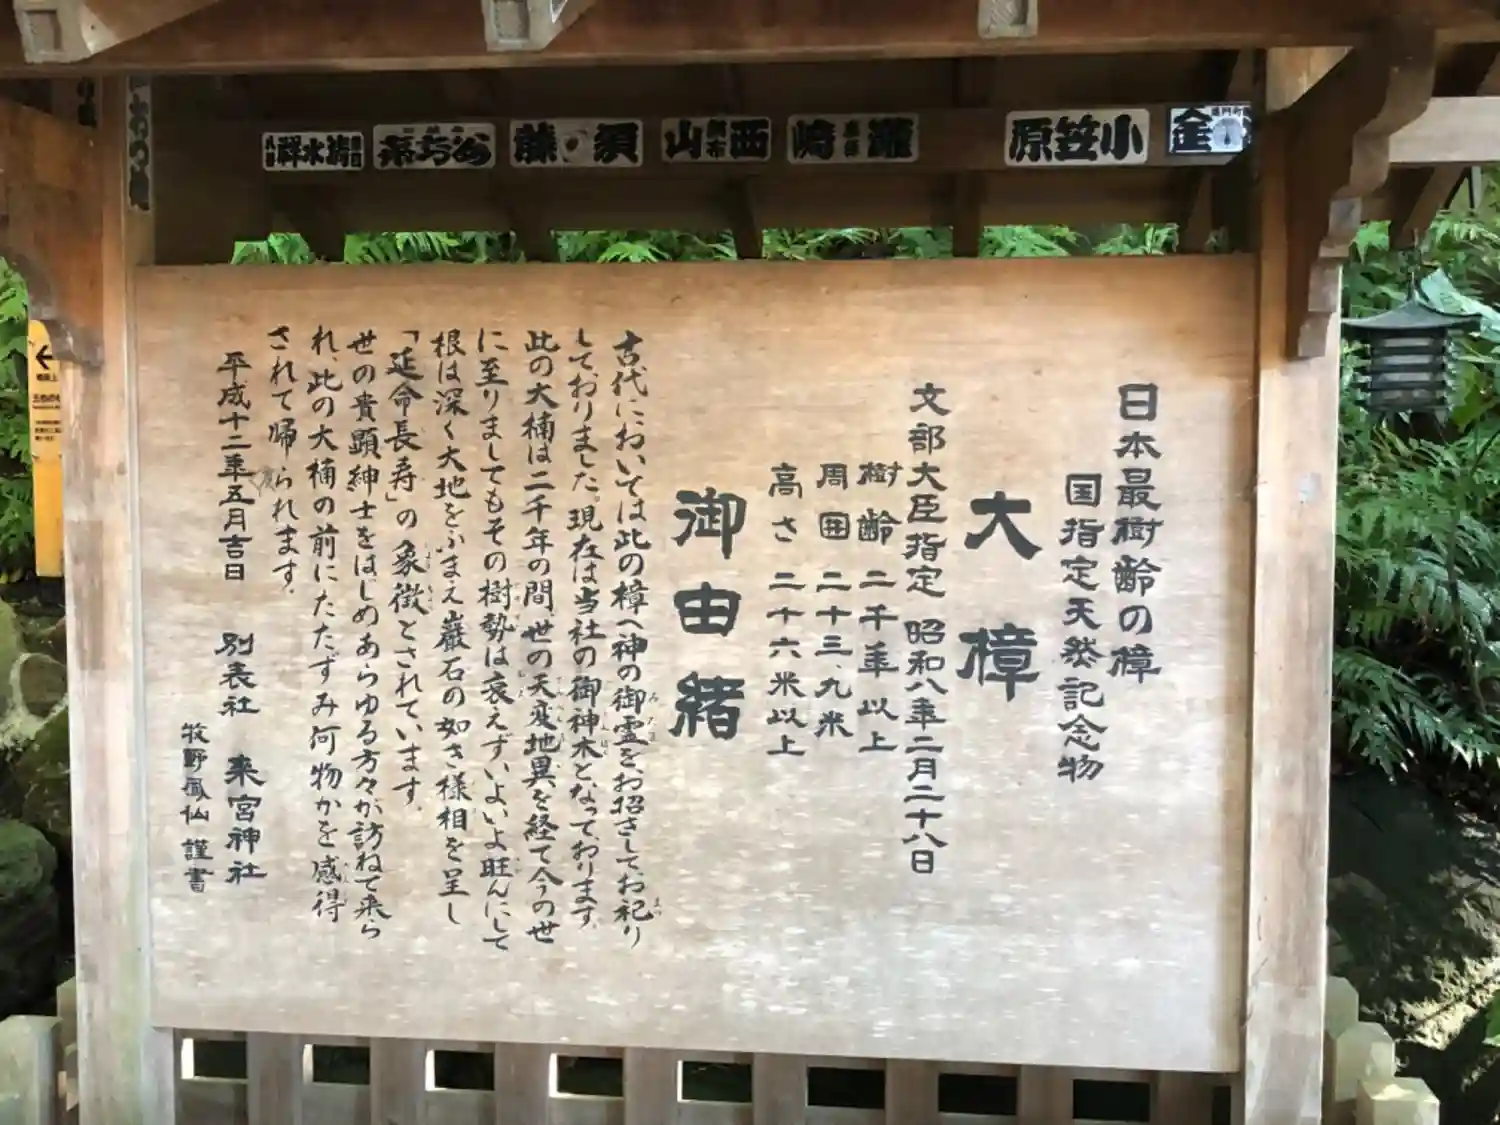 日本最樹齢の樟
国指定天然記念物
大樟
文部大臣指定 昭和八年二月二十八日
樹齢 二千年以上
周囲 二十三、九米
高さ 二十六米以上
御由緒
古代においては此の樟へ神の御霊をお招きして、お祀り
して、おりました。現在は当社の御神木となって、おります。
此の大楠は二千年の間、世の天変地異を経て今の世
に至りましてもその樹勢は衰えず、いよいよ旺んにして
根は深く大地をふまえ巌石の如き様相を呈し
「延命長寿」の象徴とされています。
世の貴顕紳士をはじめあらゆる方々が訪ねて来ら
れ、此の大楠の前にたたずみ何物かを感得
されて帰られます。
平成十二年五月吉日 別表社 来宮神社
牧野鳳仙 謹書
小笠原
西山
須藤